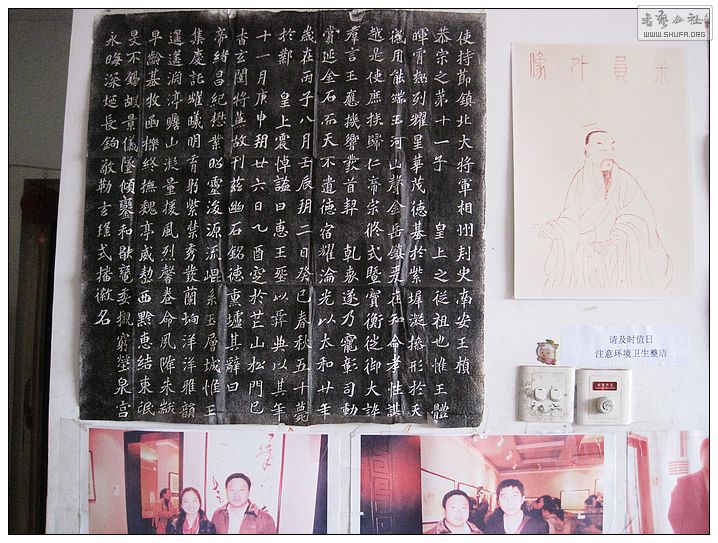 使持節鎮北大將軍相州刾史南安王楨
恭宗之第十一子 皇上之從祖也惟王體
暉霄極列耀星華茂德基於紫墀凝操形於天
儀用能端玉河山聲金岳鎮爰在知命孝性諶
越是使庶族歸仁帝宗攸式暨寶衡徙御大訊
羣言王應機響發首契 乾衷遂乃寵彰司勳
賞延金石而天不遺德宿耀淪光以太和廿年
歲在丙子八月壬辰朔二日癸巳春秋五十薨
於鄴 皇上震悼謚曰惠王葬以彝典以其年
十一月庚申朔廿六日乙酉窆於芒山松門已
杳玄闥將蕪故刊茲幽石銘德熏壚其辭曰
帝緒昌紀懋業昭靈浚源流崐系玉層城惟王
集慶託耀曦明育躬紫禁秀發蘭坰洋洋雅韻
遙遙淵渟瞻山凝量援風烈馨卷命夙降朱紱
早齡基牧函櫟終撫魏亭威整西黔惠結東氓
旻不錫嘏景儀墜傾鑾和歇轡委櫬窮塋泉宮
永晦深埏長鉤敬勒玄瑤式播徽名
米員外像
请及时值日
注意环境卫生整洁
書藝公社
WWW.SHUFA.ORG